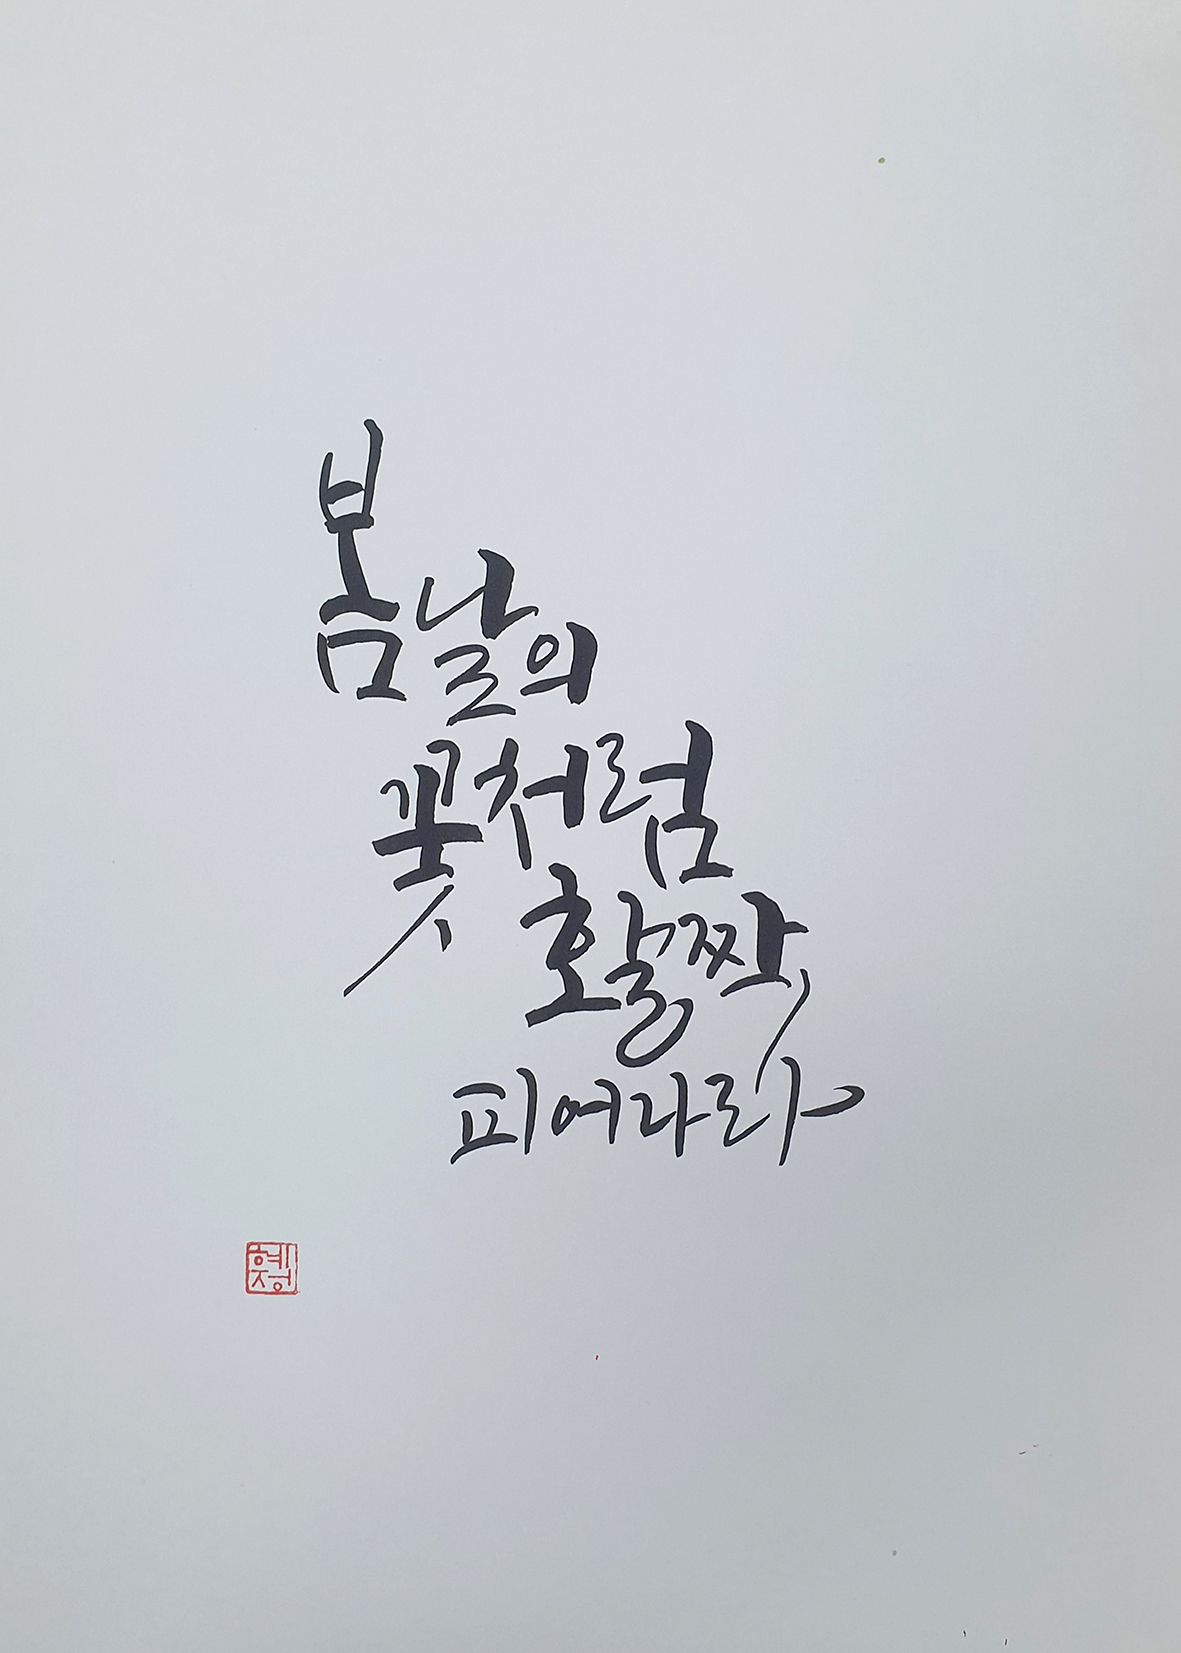 봄날의
꽃처럼
활짝
피어나라
혜정